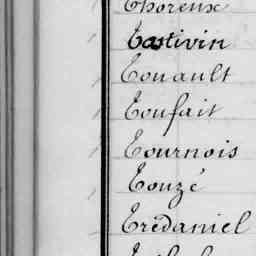 Thoreux
Tostivin
Touault
Toufait
Tournois
Touzé
Trédaniel